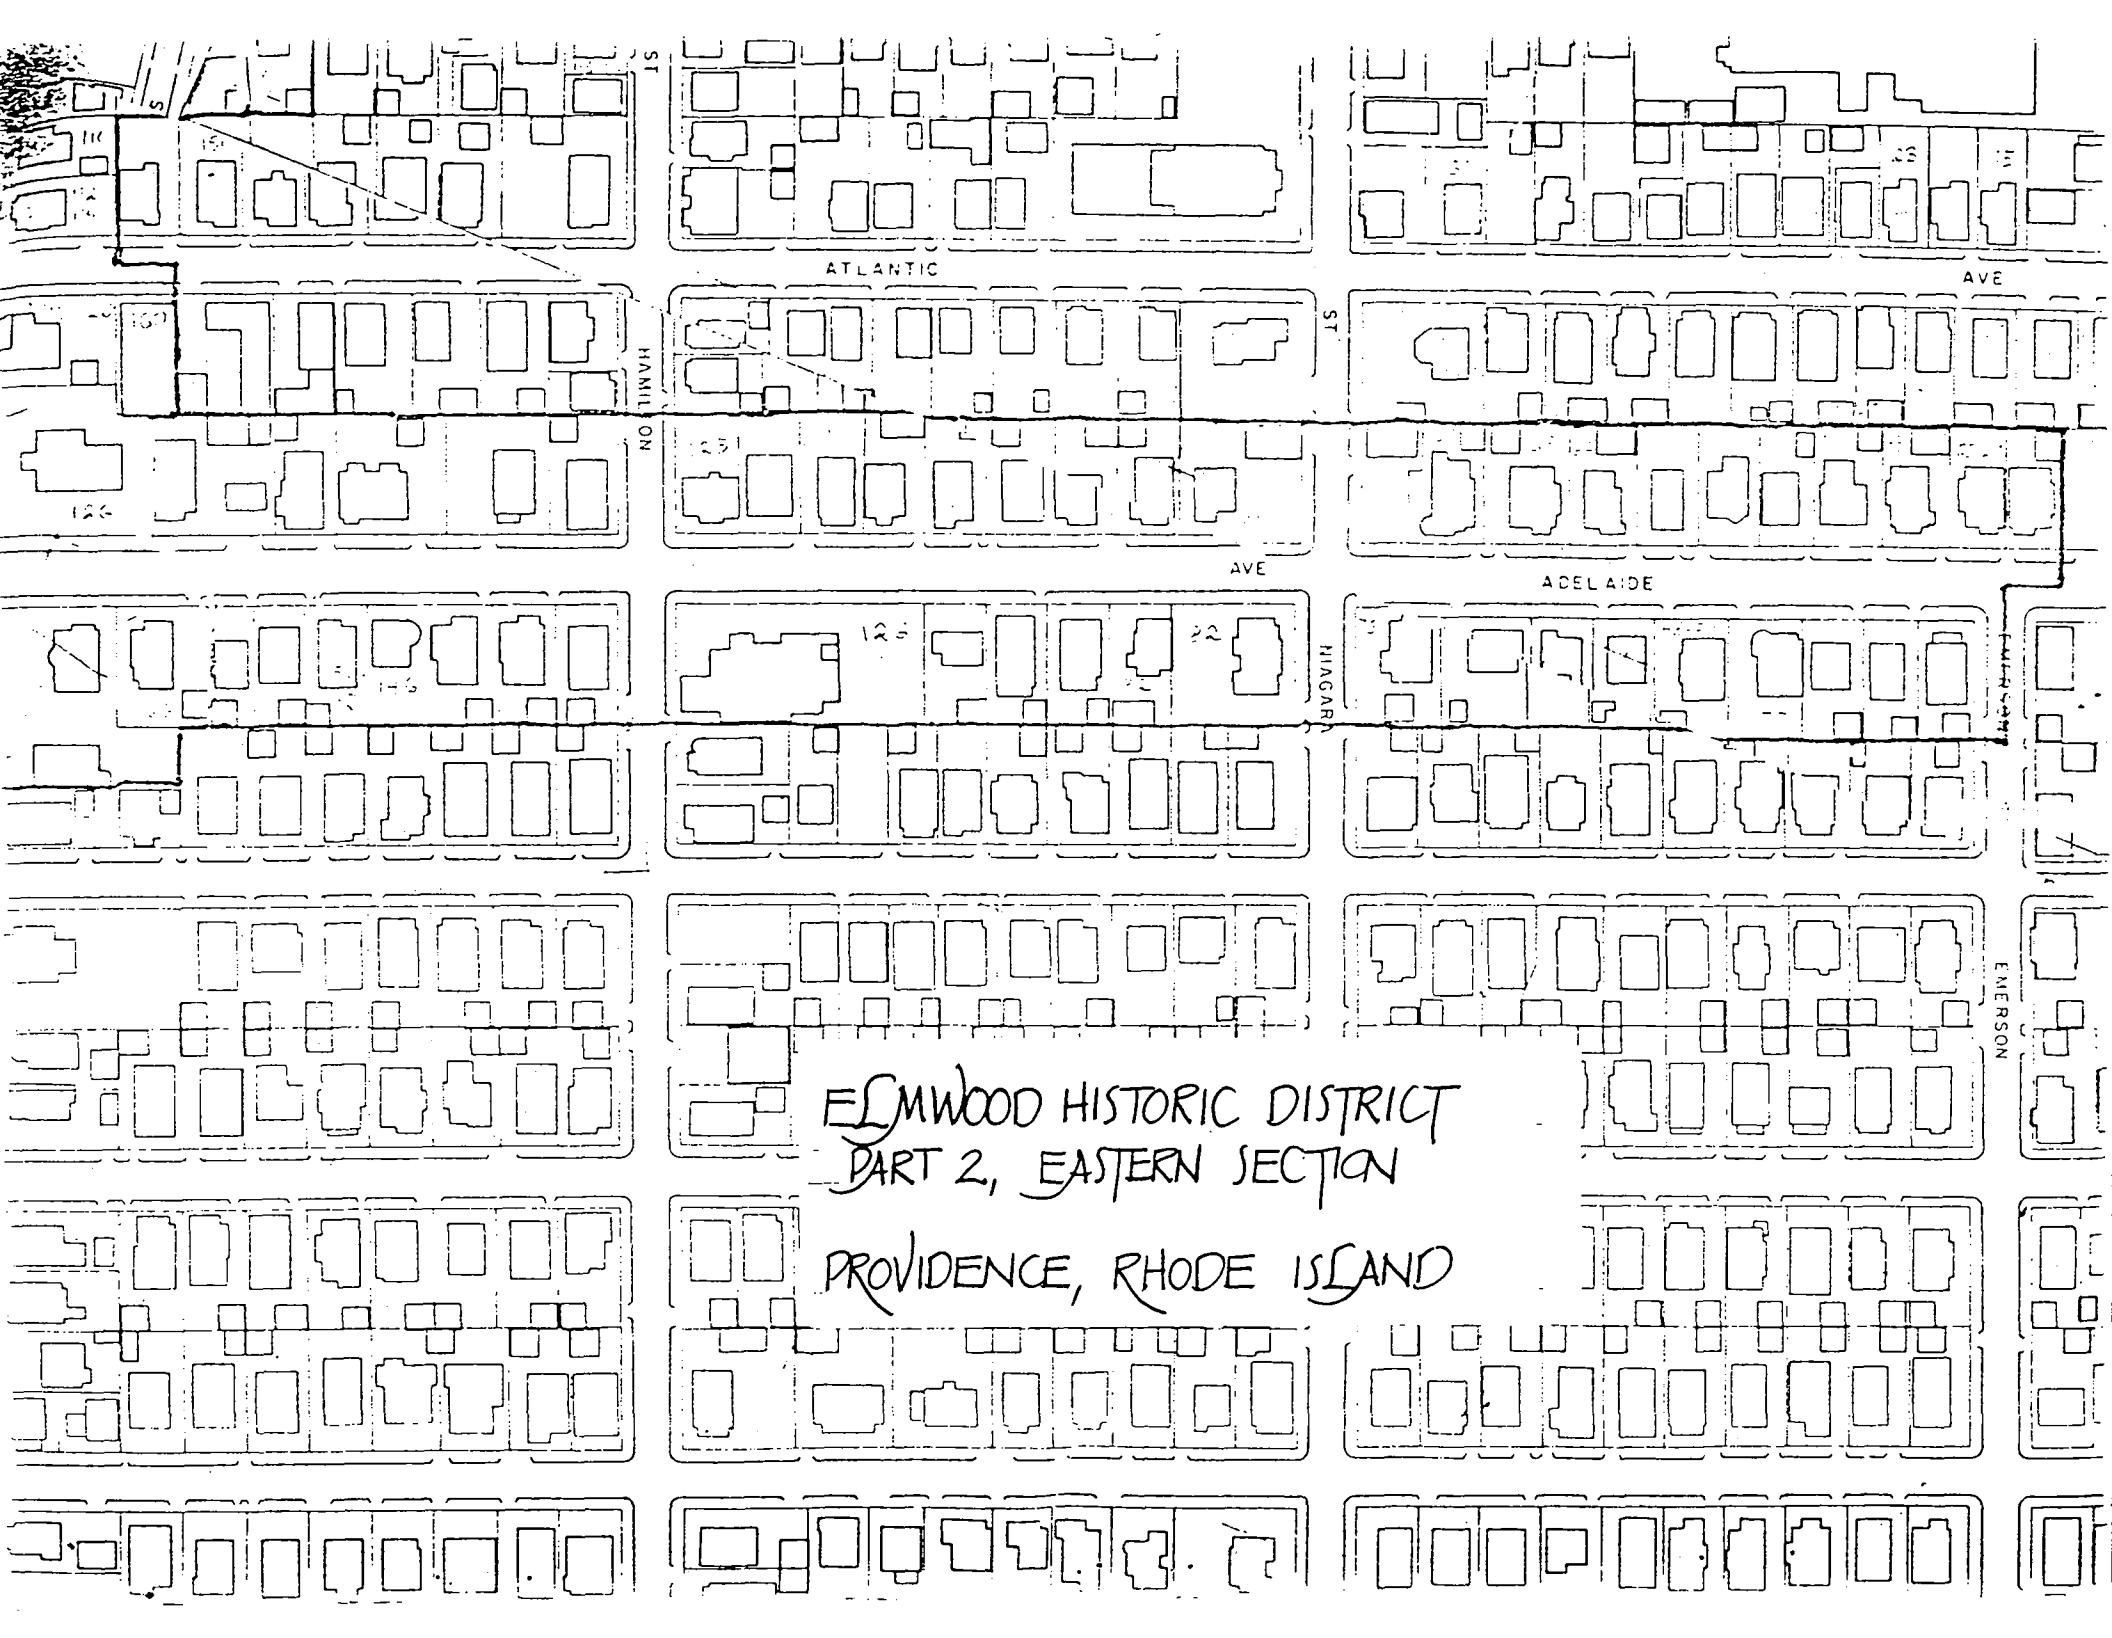 ST
S
ATLANTIC
AVE
ST
HAMILTON
126
AVE
ADELAIDE
NIAGARA
EMERSON
EMERSON
ELMWOOD HISTORIC DISTRICT
PART 2, EASTERN SECTION
PROVIDENCE, RHODE ISLAND